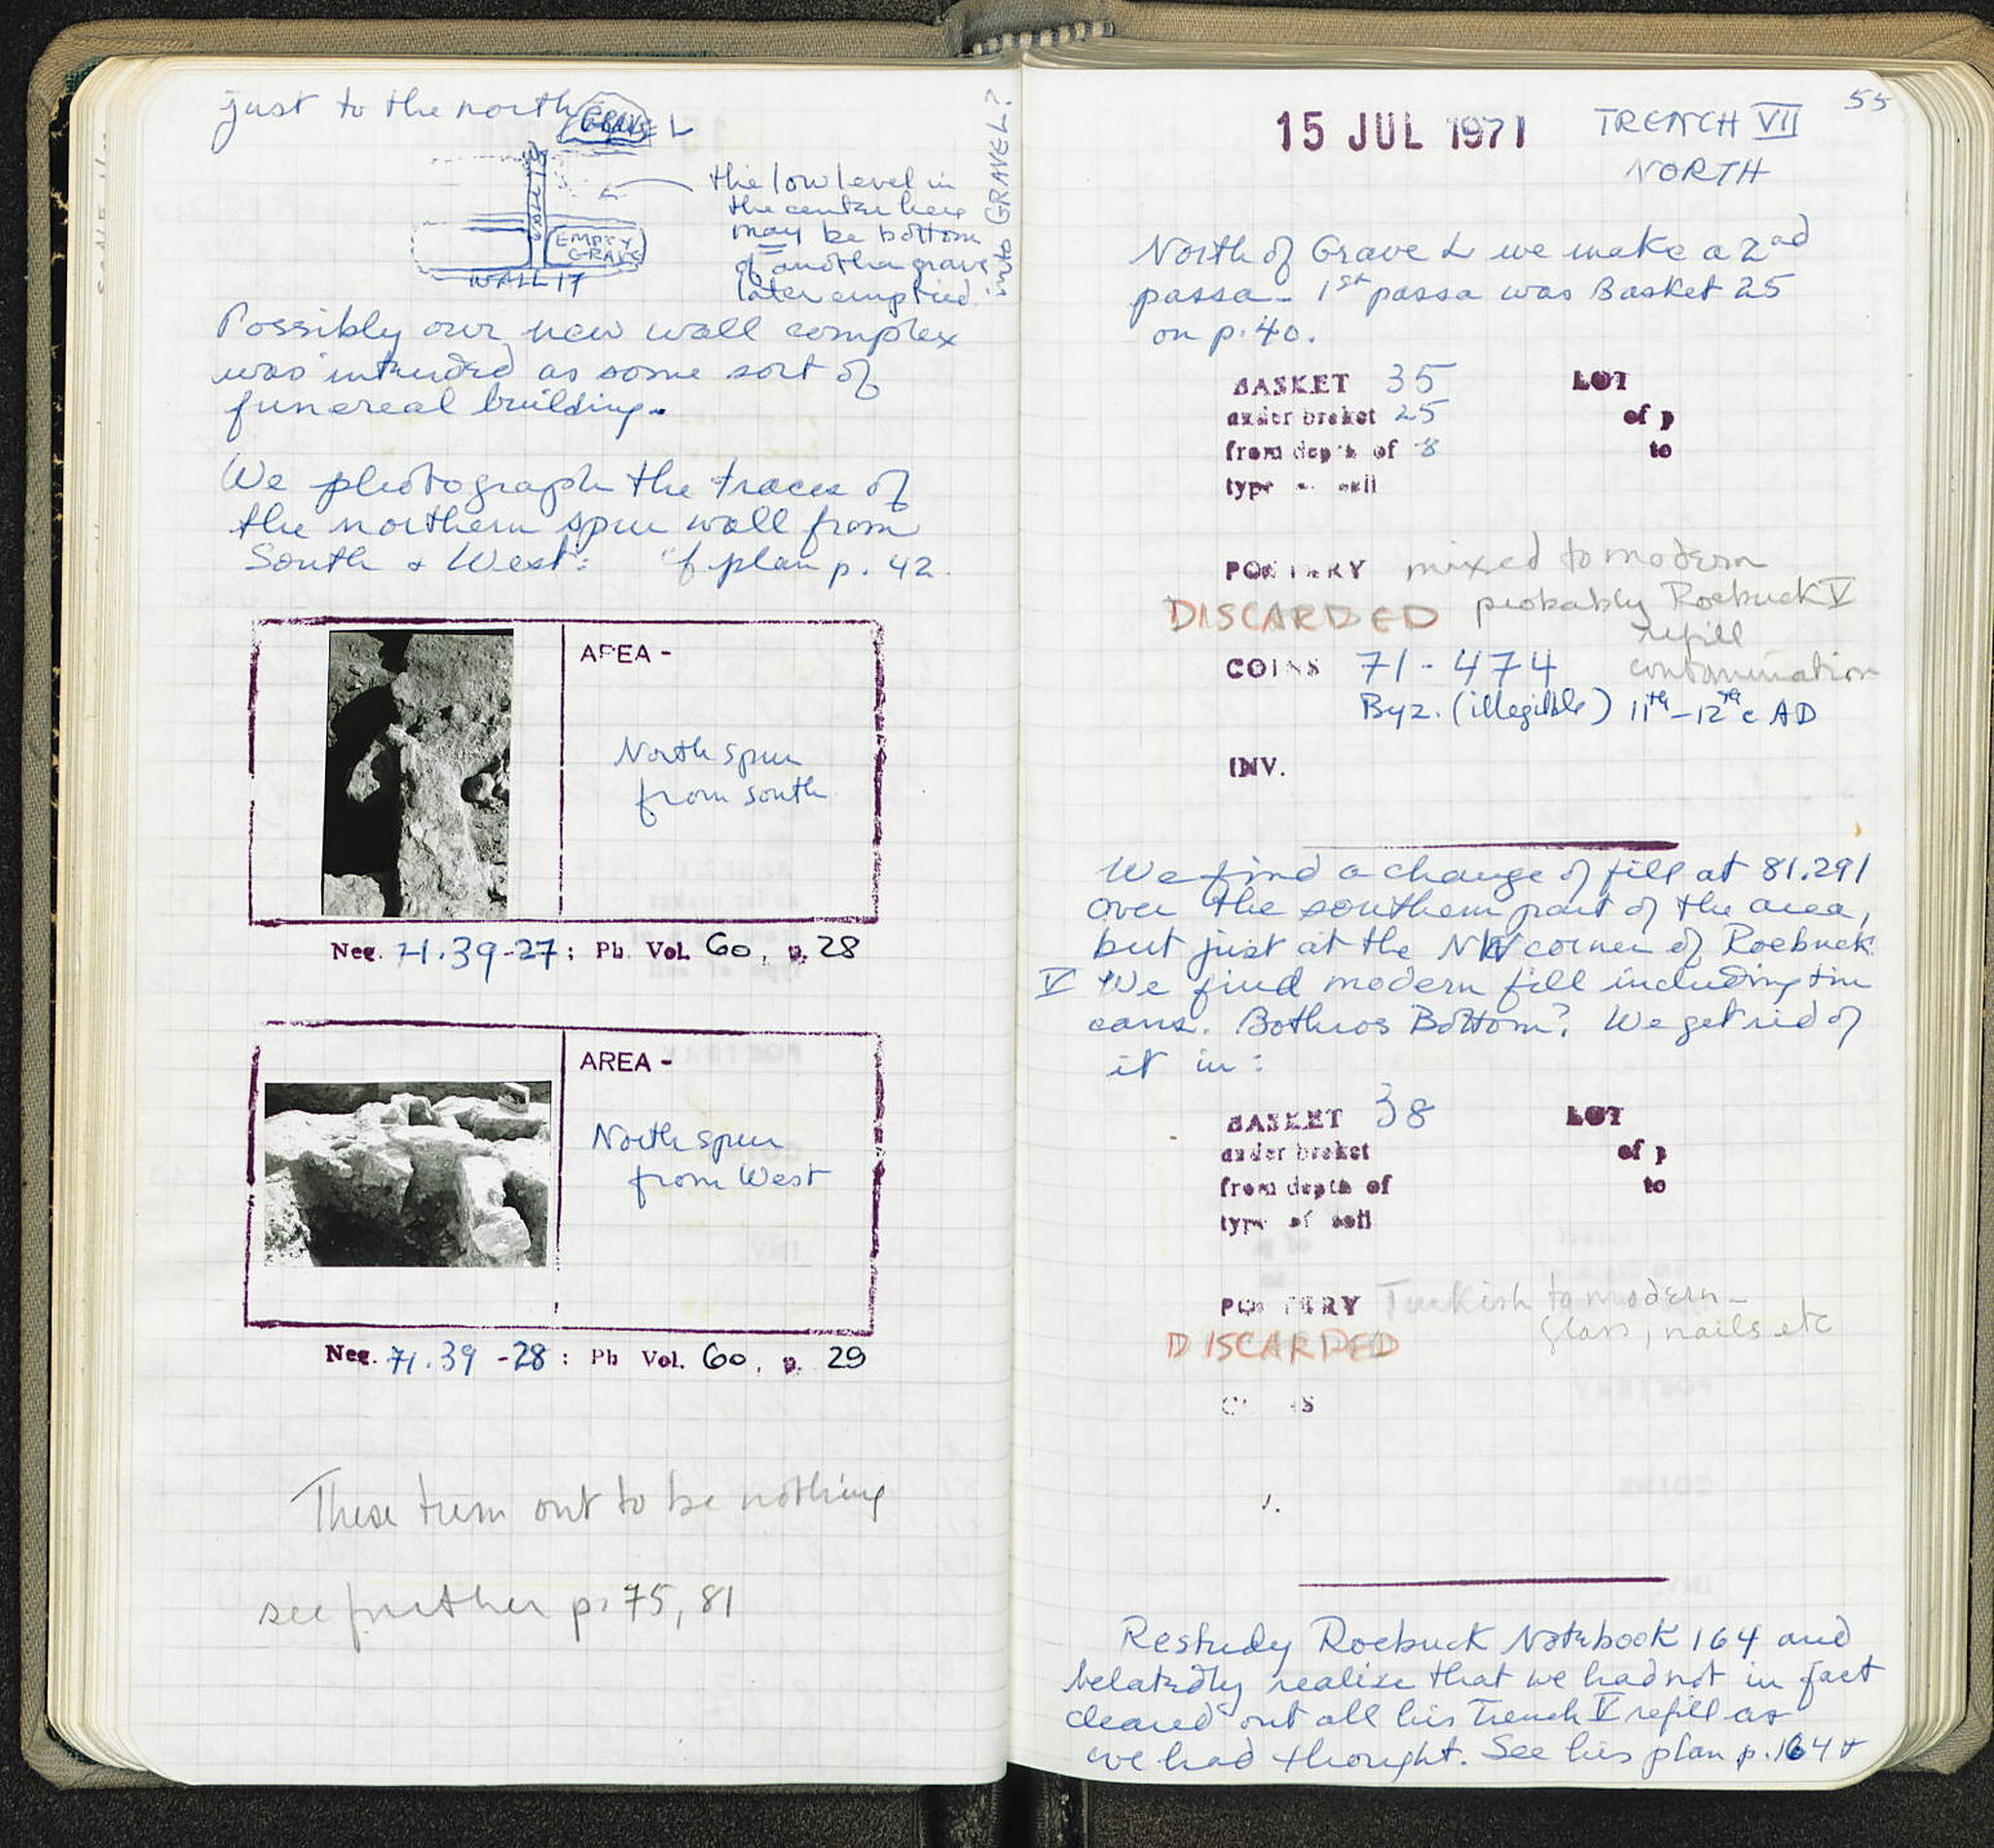 just to the north
GRAVE L
WALL
EMPTY
GRAVE
WALL 17
the low level in
the center here
may be bottom
of another grave
later emptied
into GRAVE L?
Possibly our new wall complex
was intended as some sort of
funereal building.
We photograph the traces of
the northern spur wall from
South & West: cf plan p. 42.
AREA -
North spur
from south
Neg. 71.39-27; Ph Vol. 60, p. 28
AREA -
North spur
from West
Neg. 71.39-28; Ph Vol. 60, p. 29
These turn out to be nothing
see further p. 75, 81
55
15 JUL 1971 TRENCH VII
NORTH
North of Grave L we make a 2nd
passa - 1st passa was Basket 25
on p. 40.
BASKET 35 LOT
under basket 25 of p
from depth of 8 to
type of soil
POTTERY mixed to modern
DISCARDED probably Roebuck V
refill
contamination
COINS 71-474
Byz. (illegible) 11th-12th c AD
INV.
We find a change of fill at 81.291
over the southern part of the area,
but just at the NW corner of Roebuck
V We find modern fill including tin
cans. Bothros Bottom? We get rid of
it in:
BASKET 38 LOT
under basket of p
from depth of to
type of soil
POTTERY Turkish to modern -
glass, nails etc
DISCARDED
COINS
Restudy Roebuck Notebook 164 and
belatedly realize that we had not in fact
cleared out all his Trench V refill as
we had thought. See his plan p. 164 &